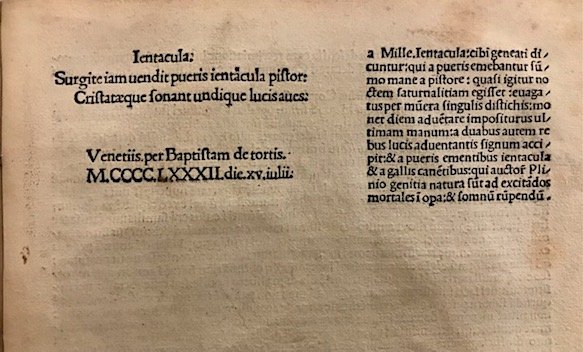 Ientacula:
Surgite iam uendit pueris ientacula pistor:
Cristatæque sonant undique lucis aues:
Venetiis. per Baptistam de tortis.
M.CCCC.LXXXII. die. xv. iulii:
a Mille. Ientacula: cibi geneati di/
cuntur: qui a pueris emebantur sū/
mo mane a pistore: quasi igitur no
ctem saturnalitiam egisset: euaga/
tus per mūera singulis distichis: mo
ner diem aduētare impositurus ul
timam manum: a duabus autem re
bus lucis aduentantis signum acci
pit: & a pueris ementibus ientacula
& a gallis canētibus: qui auctoƒ Pli
nio genitia natura sūt ad excitādos
mortales ī opa: & somnū rūpendū.